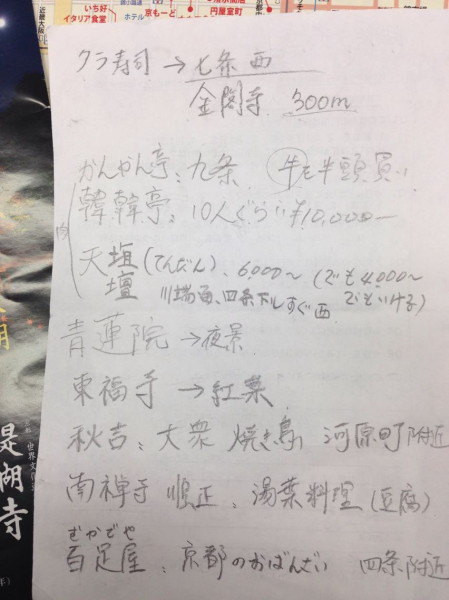 いち好
イタリア食堂
ホテル
京もーと
円屋室町
クラ寿司 → 七条西
金閣寺 300m
かんかん亭: 九条 牛を半頭買い
韓韓亭: 10人ぐらい¥10,000-
天垣壇 (てんだん)、6,000~ (でも4,000~でもいける)
川端西、四条下ルすぐ西
青蓮院 → 夜景
東福寺 → 紅葉
秋吉: 大衆 焼き鳥 河原町附近
南禅寺 順正: 湯葉料理 (豆腐)
むかでや
百足屋: 京都のおばんざい 四条附近
是
湖
寺